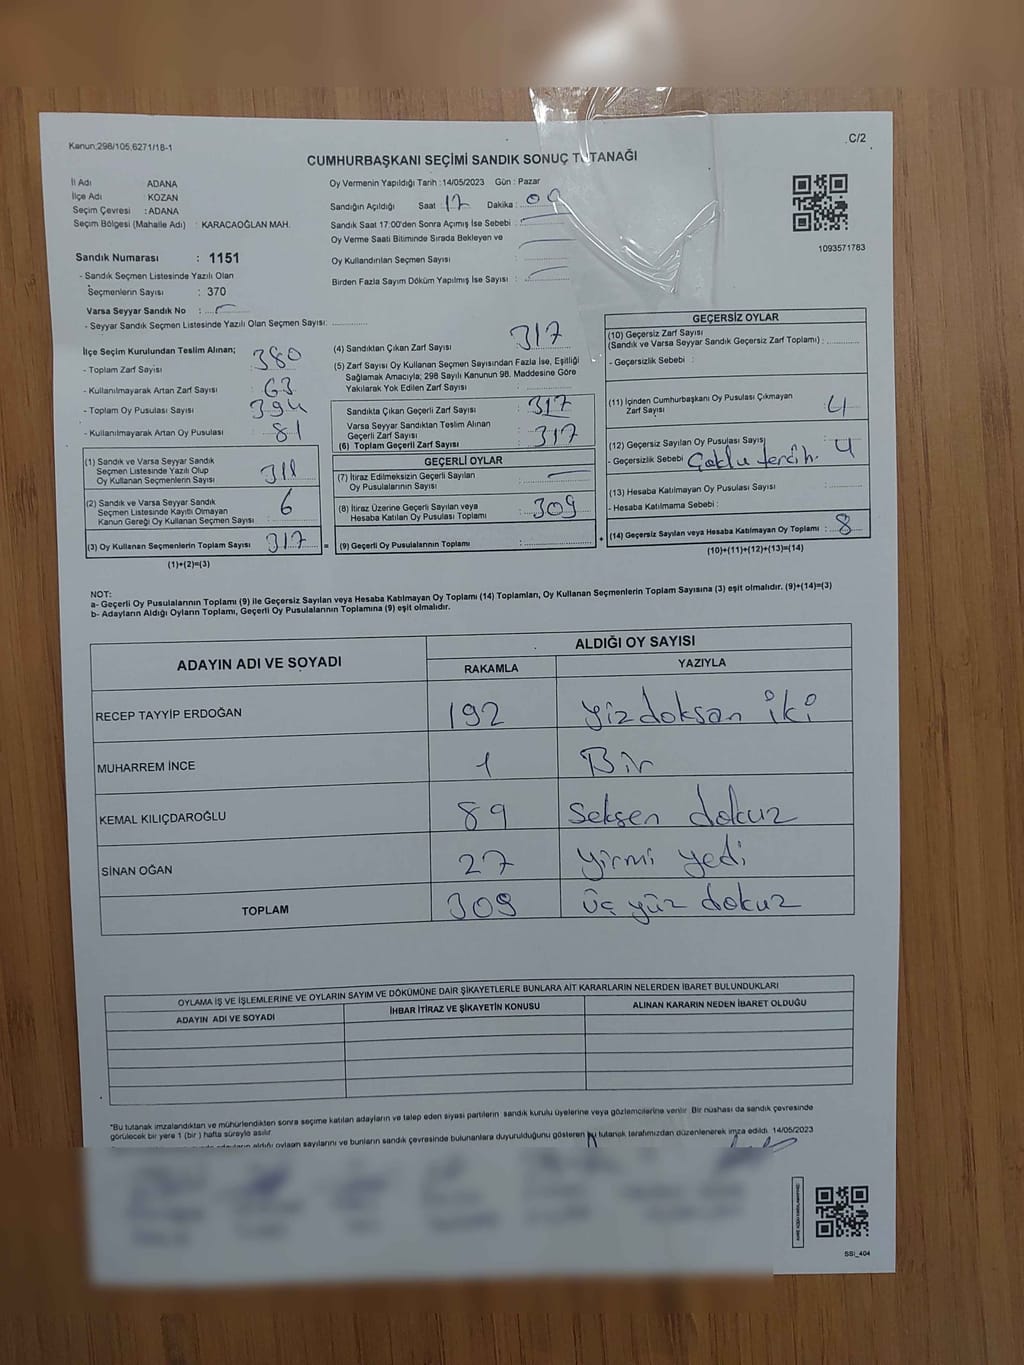 Kanun;298/105,6271/18-1
C/2
CUMHURBAŞKANI SEÇİMİ SANDIK SONUÇ TUTANAĞI
İl Adı ADANA
İlçe Adı : KOZAN
Seçim Çevresi : ADANA
Seçim Bölgesi (Mahalle Adı) : KARACAOĞLAN MAH.
Oy Vermenin Yapıldığı Tarih :14/05/2023 Gün : Pazar
Sandığın Açıldığı Saat 17 Dakika
Sandık Saat 17:00'den Sonra Açımış İse Sebebi :
Oy Verme Saati Bitiminde Sırada Bekleyen ve
Oy Kullandırılan Seçmen Sayısı :
Birden Fazla Sayım Döküm Yapılmış İse Sayısı :
1093571783
Sandık Numarası : 1151
- Sandık Seçmen Listesinde Yazılı Olan
Seçmenlerin Sayısı : 370
Varsa Seyyar Sandık No :
- Seyyar Sandık Seçmen Listesinde Yazılı Olan Seçmen Sayısı:
İlçe Seçim Kurulundan Teslim Alınan;
- Toplam Zarf Sayısı 380
- Kullanılmayarak Artan Zarf Sayısı 63
- Toplam Oy Pusulası Sayısı 394
- Kullanılmayarak Artan Oy Pusulası 81
(1) Sandık ve Varsa Seyyar Sandık
Seçmen Listesinde Yazılı Olup
Oy Kullanan Seçmenlerin Sayısı 311
(2) Sandık ve Varsa Seyyar Sandık
Seçmen Listesinde Kayıtlı Olmayan
Kanun Gereği Oy Kullanan Seçmen Sayısı : 6
(3) Oy Kullanan Seçmenlerin Toplam Sayısı : 317 =
(1)+(2)=(3)
(4) Sandıktan Çıkan Zarf Sayısı 317
(5) Zarf Sayısı Oy Kullanan Seçmen Sayısından Fazla İse, Eşitliği
Sağlamak Amacıyla; 298 Sayılı Kanunun 98. Maddesine Göre
Yakılarak Yok Edilen Zarf Sayısı :
Sandıkta Çıkan Geçerli Zarf Sayısı : 317
Varsa Seyyar Sandıktan Teslim Alınan
Geçerli Zarf Sayısı
(6) Toplam Geçerli Zarf Sayısı : 317
GEÇERLİ OYLAR
(7) İtiraz Edilmeksizin Geçerli Sayılan
Oy Pusulalarının Sayısı :
(8) İtiraz Üzerine Geçerli Sayılan veya
Hesaba Katılan Oy Pusulası Toplamı : 309
(9) Geçerli Oy Pusulalarının Toplamı :
+
GEÇERSİZ OYLAR
(10) Geçersiz Zarf Sayısı
(Sandık ve Varsa Seyyar Sandık Geçersiz Zarf Toplamı) :
- Geçersizlik Sebebi :
(11) İçinden Cumhurbaşkanı Oy Pusulası Çıkmayan
Zarf Sayısı : 4
(12) Geçersiz Sayılan Oy Pusulası Sayısı : 4
- Geçersizlik Sebebi Çoklu tercih.
(13) Hesaba Katılmayan Oy Pusulası Sayısı :
- Hesaba Katılmama Sebebi :
(14) Geçersiz Sayılan veya Hesaba Katılmayan Oy Toplamı : 8
(10)+(11)+(12)+(13)=(14)
NOT:
a- Geçerli Oy Pusulalarının Toplamı (9) ile Geçersiz Sayılan veya Hesaba Katılmayan Oy Toplamı (14) Toplamları, Oy Kullanan Seçmenlerin Toplam Sayısına (3) eşit olmalıdır. (9)+(14)=(3)
b- Adayların Aldığı Oyların Toplamı, Geçerli Oy Pusulalarının Toplamına (9) eşit olmalıdır.
ADAYIN ADI VE SOYADI ALDIĞI OY SAYISI
RAKAMLA YAZIYLA
RECEP TAYYİP ERDOĞAN 192 yizdoksan iki
MUHARREM İNCE 1 Bir
KEMAL KILIÇDAROĞLU 89 seksen dokuz
SİNAN OĞAN 27 yirmi yedi
TOPLAM 309 üç yüz dokuz
OYLAMA İŞ VE İŞLEMLERİNE VE OYLARIN SAYIM VE DÖKÜMÜNE DAİR ŞİKAYETLERLE BUNLARA AİT KARARLARIN NELERDEN İBARET BULUNDUKLARI
ADAYIN ADI VE SOYADI İHBAR İTİRAZ VE ŞİKAYETİN KONUSU ALINAN KARARIN NEDEN İBARET OLDUĞU
*Bu tutanak imzalandıktan ve mühürlendikten sonra seçime katılan adayların ve talep eden siyasi partilerin sandık kurulu üyelerine veya gözlemcilerine verilir. Bir nüshası da sandık çevresinde
görülecek bir yere 1 (bir ) hafta süreyle asılır.
aldığı oyların sayılarını ve bunların sandık çevresinde bulunanlara duyurulduğunu gösteren bu tutanak tarafımızdan düzenlenerek imza edildi. 14/05/2023
SSi_404